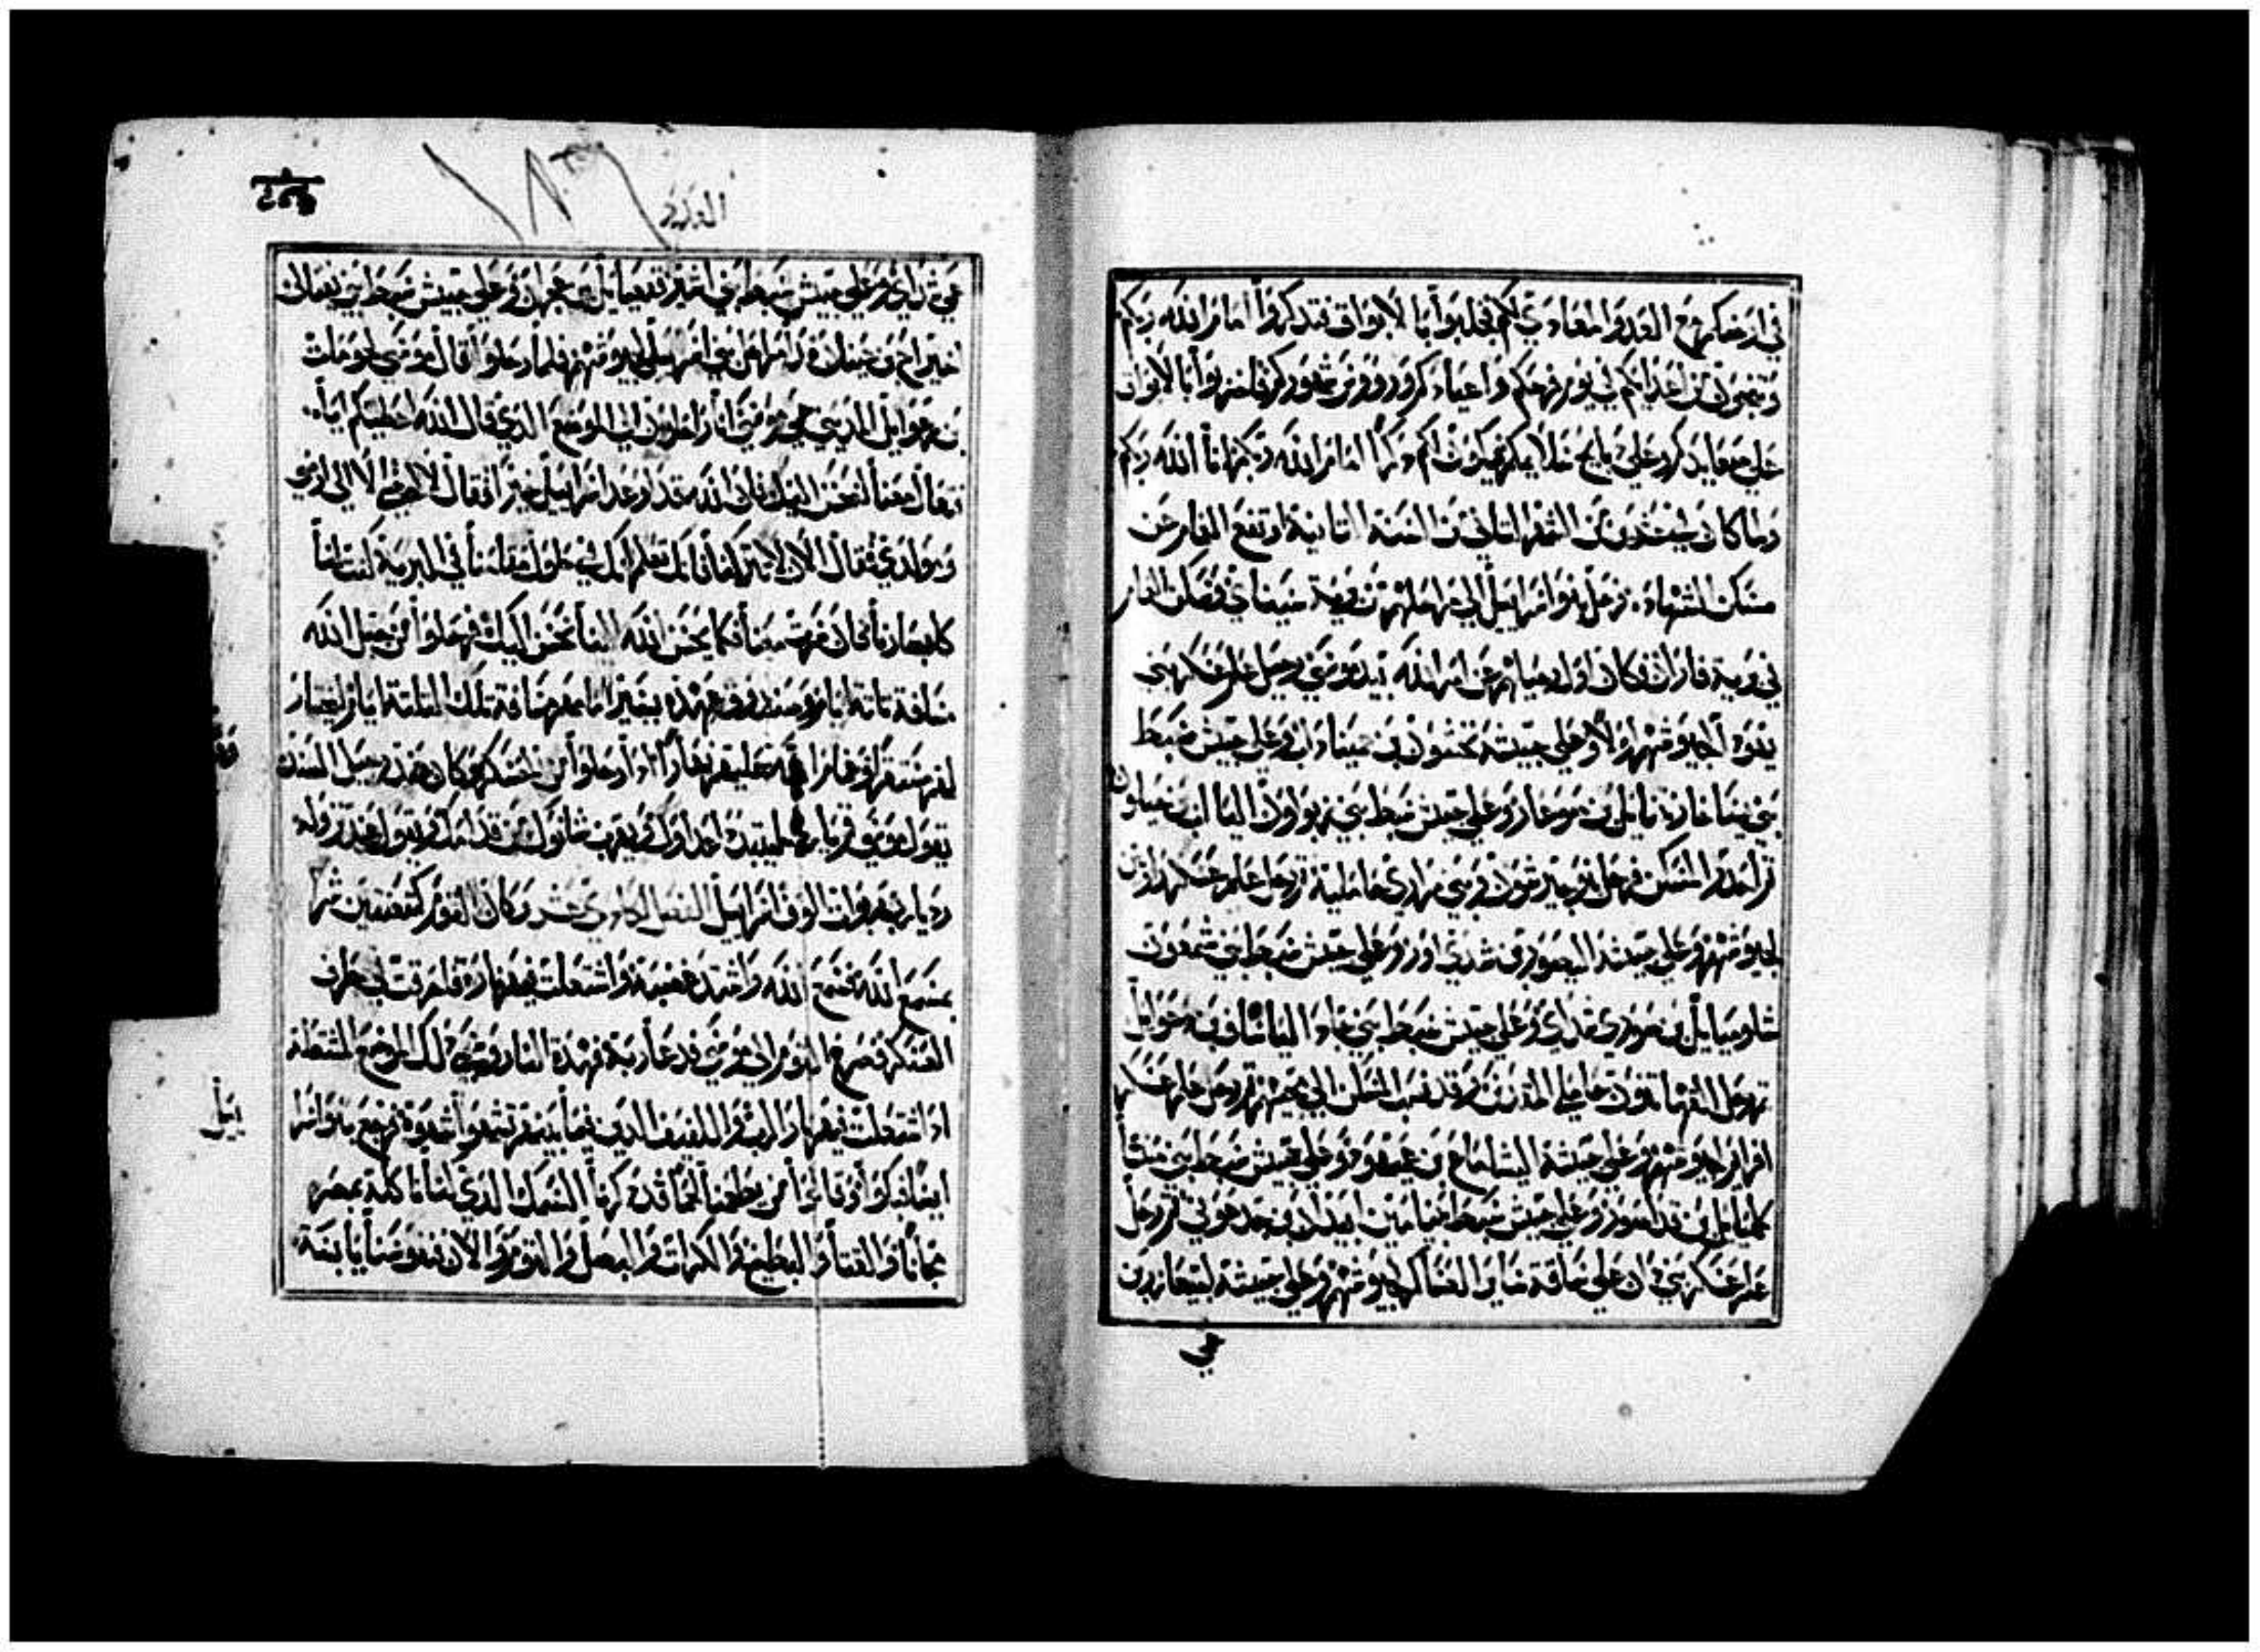 في ارضكم مع العدو المعادي لكم فجلبوا بالابواق فتذكروا امام الله ربكم
وتنجون من اعدائكم في يوم فرحكم واعيادكم وروس شهوركم فاضربوا بالابواق
علي صعايدكم وعلي ذبايح سلامتكم فيكون لكم ذكرا امام الله ربكم انا الله ربكم
وما كان في عشرين من الشهر الثاني من السنة الثانية ارتفع الغمام عن
مسكن الشهادة فرحل بنو اسراييل الي مراحلهم من برية سيناي وسكن الغمام
في برية فاران وكان اول رحيلهم عن امر الله بيد موسي رحل علم عسكر بني
يهوذا لجيوشهم اولا وعلي جيشه نحشون بن عميناداب وعلي جيش سبط
بني يساخار نتانايل بن صوعار وعلي جيش سبط بني زبولون الياب بن حيلون
ثم احدر المسكن فرحل بنو جيرشون وبني مراري حاملية ثم رحل علم عسكر روبين
لجيوشهم وعلي جيشه اليصور بن شدياور وعلي جيش سبط بني شمعون
شلوميايل بن صوري شداي وعلي جيش سبط بني جاد الياساف بن دعوايل
ثم رحل القهاتيون حاملي المقدس وقد نصب المسكن الي مجيهم ثم رحل علم عسكر
افرايم لجيوشهم وعلي جيشه اليشاماع بن عميهود وعلي جيش سبط بني منشا
جمليايل بن فداهصور وعلي جيش سبط بنيامين ابيدان بن جدعوني ثم رحل
علم عسكر بني دان علي ساقة ساير العساكر لجيوشهم وعلي جيشه اخيعازر بن
عمي
العدد
عمي شداي وعلي جيش سبط بني اشير فجعيايل بن عجران وعلي جيش سبط بني نفتالي
اخيراع بن عينان هذه مراحل بني اسراييل لجيوشهم فلما رحلوا قال موسي لحوباب
بن رعوايل المديني حمي موسي انا راحلون الي الموضع الذي قال الله اعطيكم اياه
تعال معنا لنحسن اليك فان الله قد اوعد اسراييل خيرا فقال لا امضي الا الي ارضي
ومولدي فقال الان لا تتركنا فانك تعلم انك في حلول مقامنا في البرية كنت لنا
كابصارنا فان مررت معنا فكما يحسن الله الينا نحسن اليك فرحلوا من جبل الله
مسافة ثلثة ايام وصندوق عهده يسير امامهم مسافة تلك الثلثة ايام ليختار
لهم مستقرا وغمام الله عليهم نهارا اذا رحلوا من عسكرهم وكان عند رحيل الصندوق
يقول موسي قم يارب ليتبدد اعداوك ويهرب شانوك من قدامك ويقول عند نزوله
رد يارب ربوات الوف اسراييل الفصل الحادي عشر وكان القوم كمتعنتين شرا
بمسمع الله فسمع الله واشتد غضبه واشتعلت فيهم نار فاحرقت في طرف
العسكر فصرخ القوم الي موسي فدعا ربه فهدت النار وسمي ذلك الموضع المشتعلة
اذ اشتعلت فيهم نار الرب واللفيف الذين فيما بينهم تشهوا شهوة فرجع بنو اسرا
ييل
ايضا فبكوا وقالوا من يطعمنا لحما قد ذكرنا السمك الذي كنا ناكله بمصر
مجانا والقثا والبطيخ والكراث والبصل والثوم والان نفوسنا يابسة